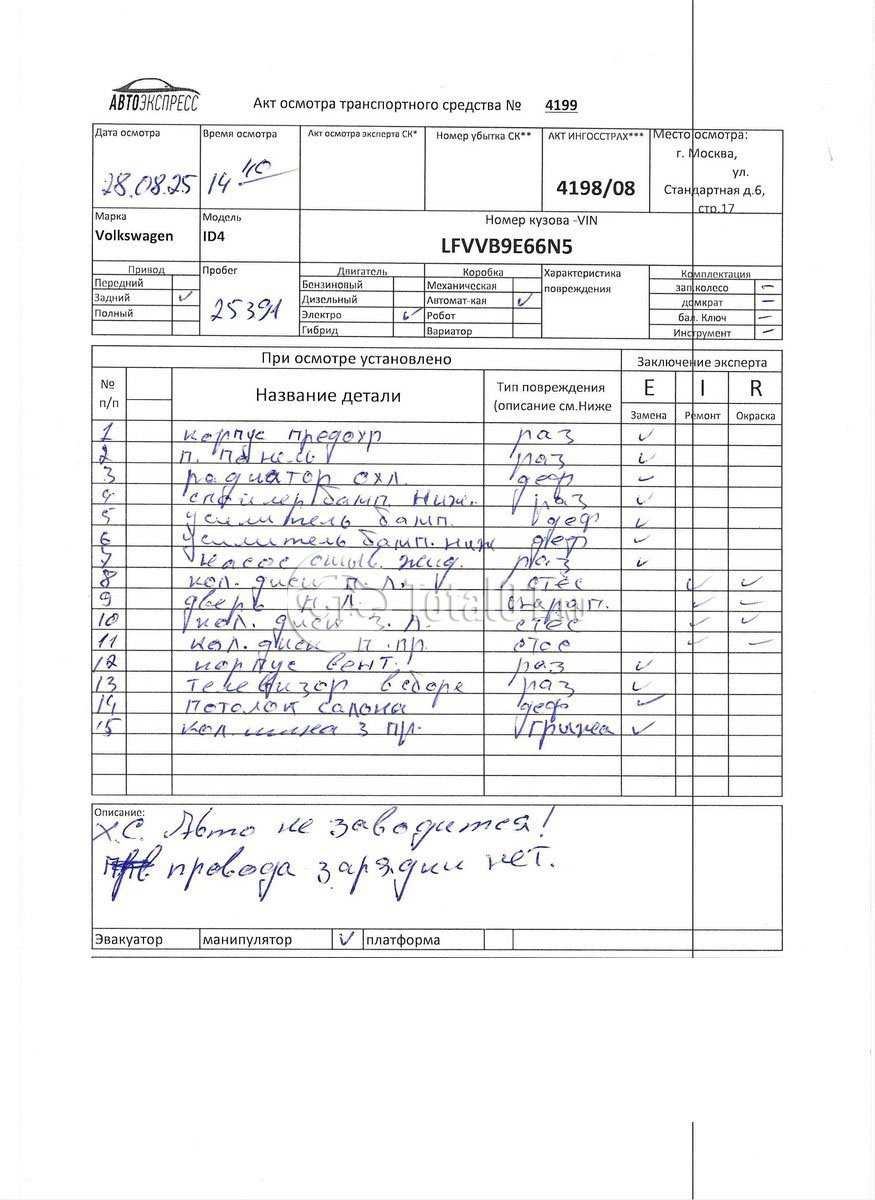 АВТОЭКСПРЕСС
Акт осмотра транспортного средства № 4199
Дата осмотра Время осмотра Акт осмотра эксперта СК* Номер убытка СК** АКТ ИНГОССТРАХ*** Место осмотра:
28.08.25 14 40 4198/08 г. Москва,
ул.
Стандартная д.6,
стр.17
Марка Модель Номер кузова -VIN
Volkswagen ID4 LFVVB9E66N5
Привод Пробег Двигатель Коробка Характеристика Комплектация
Передний Бензиновый Механическая повреждения зап.колесо –
Задний ✓ 25391 Дизельный Автомат-кая ✓ домкрат –
Полный Электро ✓ Робот бал. Ключ –
Гибрид Вариатор Инструмент –
При осмотре установлено Заключение эксперта
№ п/п Название детали Тип повреждения (описание см.Ниже E I R
Замена Ремонт Окраска
1 корпус предохр раз ✓
2 п. панель раз ✓
3 радиатор охл. деф ✓
4 спойлер бамп. ниж. раз ✓
5 усилитель бамп. деф ✓
6 усилитель бамп. ниж деф ✓
7 насос омыв. жид. раз ✓
8 кол. диск п. л. стёс ✓ ✓
9 дверь п л. царап. ✓ –
10 кол. диск з. л. стёс ✓ ✓
11 кол. диск п. пр. стёс ✓ –
12 корпус вент. раз ✓
13 телевизор в сборе раз ✓
14 потолок салона деф ✓
15 кол. шина з пр. грыжа ✓
Total01.ru
Описание:
Х.С. Авто не заводится!
провода зарядки нет.
Эвакуатор манипулятор ✓ платформа